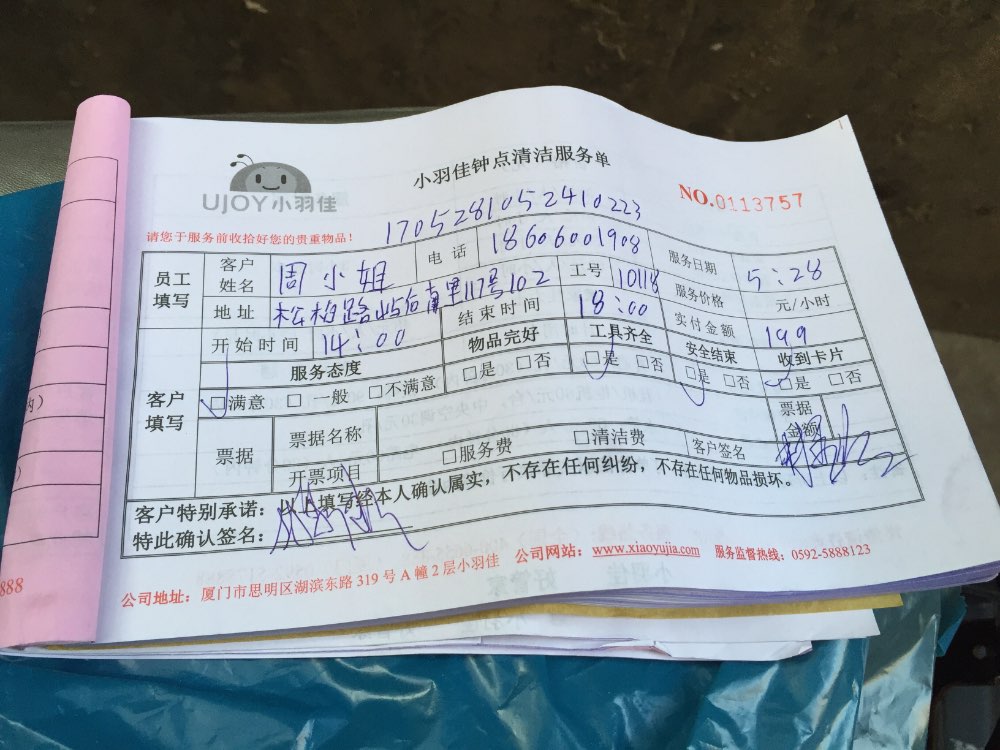 小羽佳钟点清洁服务单
UJOY小羽佳
NO.0113757
请您于服务前收拾好您的贵重物品！
1705281052410223
员工填写 客户姓名 周小姐 电话 18606001908 服务日期 5:28
地址 松柏路 南里117号102 工号 10118 服务价格 元/小时
开始时间 14:00 结束时间 18:00 实付金额 199
客户填写 服务态度 物品完好 工具齐全 安全结束 收到卡片
□满意 □一般 □不满意 □是 □否 □是 □否 □是 □否 □是 □否
票据 票据名称 票据金额
开票项目 □服务费 □清洁费 客户签名
客户特别承诺：以上填写经本人确认属实，不存在任何纠纷，不存在任何物品损坏。
特此确认签名：
公司地址：厦门市思明区湖滨东路 319 号 A 幢 2 层小羽佳 公司网站：www.xiaoyujia.com 服务监督热线：0592-5888123
888
内）